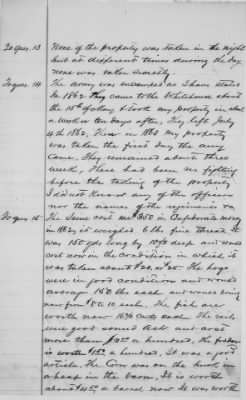 To Ques. 13 None of the property was taken in the night
but at different times during the day
none was taken secretly.
To ques. 14 The army was encamped as I have stated
In 1862 they came to the Whitehouse about
the 15th of May & took my property in about
a week or ten days after, They left July
4th 1862, Then in 1863 my property
was taken the first day the army
came. They remained about three
week, There had been no fighting
before the taking of the property
I did not know any of the officers
nor the names of the regiments
To ques. 15 The Seine cost me $350 in Confederate money
in 1862, it weighed 6 lbs. fine thread, it
was 150 yds long by deep and
cost now on the condition in which it
was taken about $20. or $25. The hogs
were in good condition and would
average 150 lbs each and were being
now from 8 to 10 each. The fish are
worth now 16 2/3 cents each. The rails
were good sound and cost
more than a hundred, the
is worth $1.50 a hundred, It was a good
article. The Corn was on the husk in
a heap in the barn. It is worth
about $4.50 a barrel now It was worth